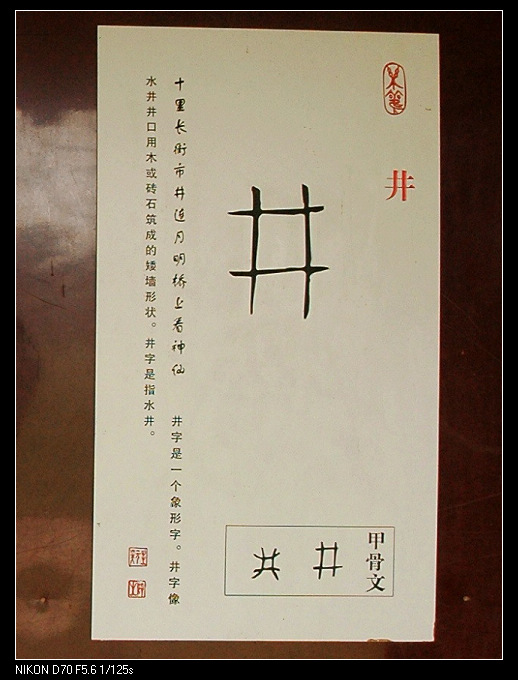 井
井
甲骨文
十里长街市井连月明桥上看神仙
井字是一个象形字。井字像
水井井口用木或砖石筑成的矮墙形状。井字是指水井。
NIKON D70 F5.6 1/125s